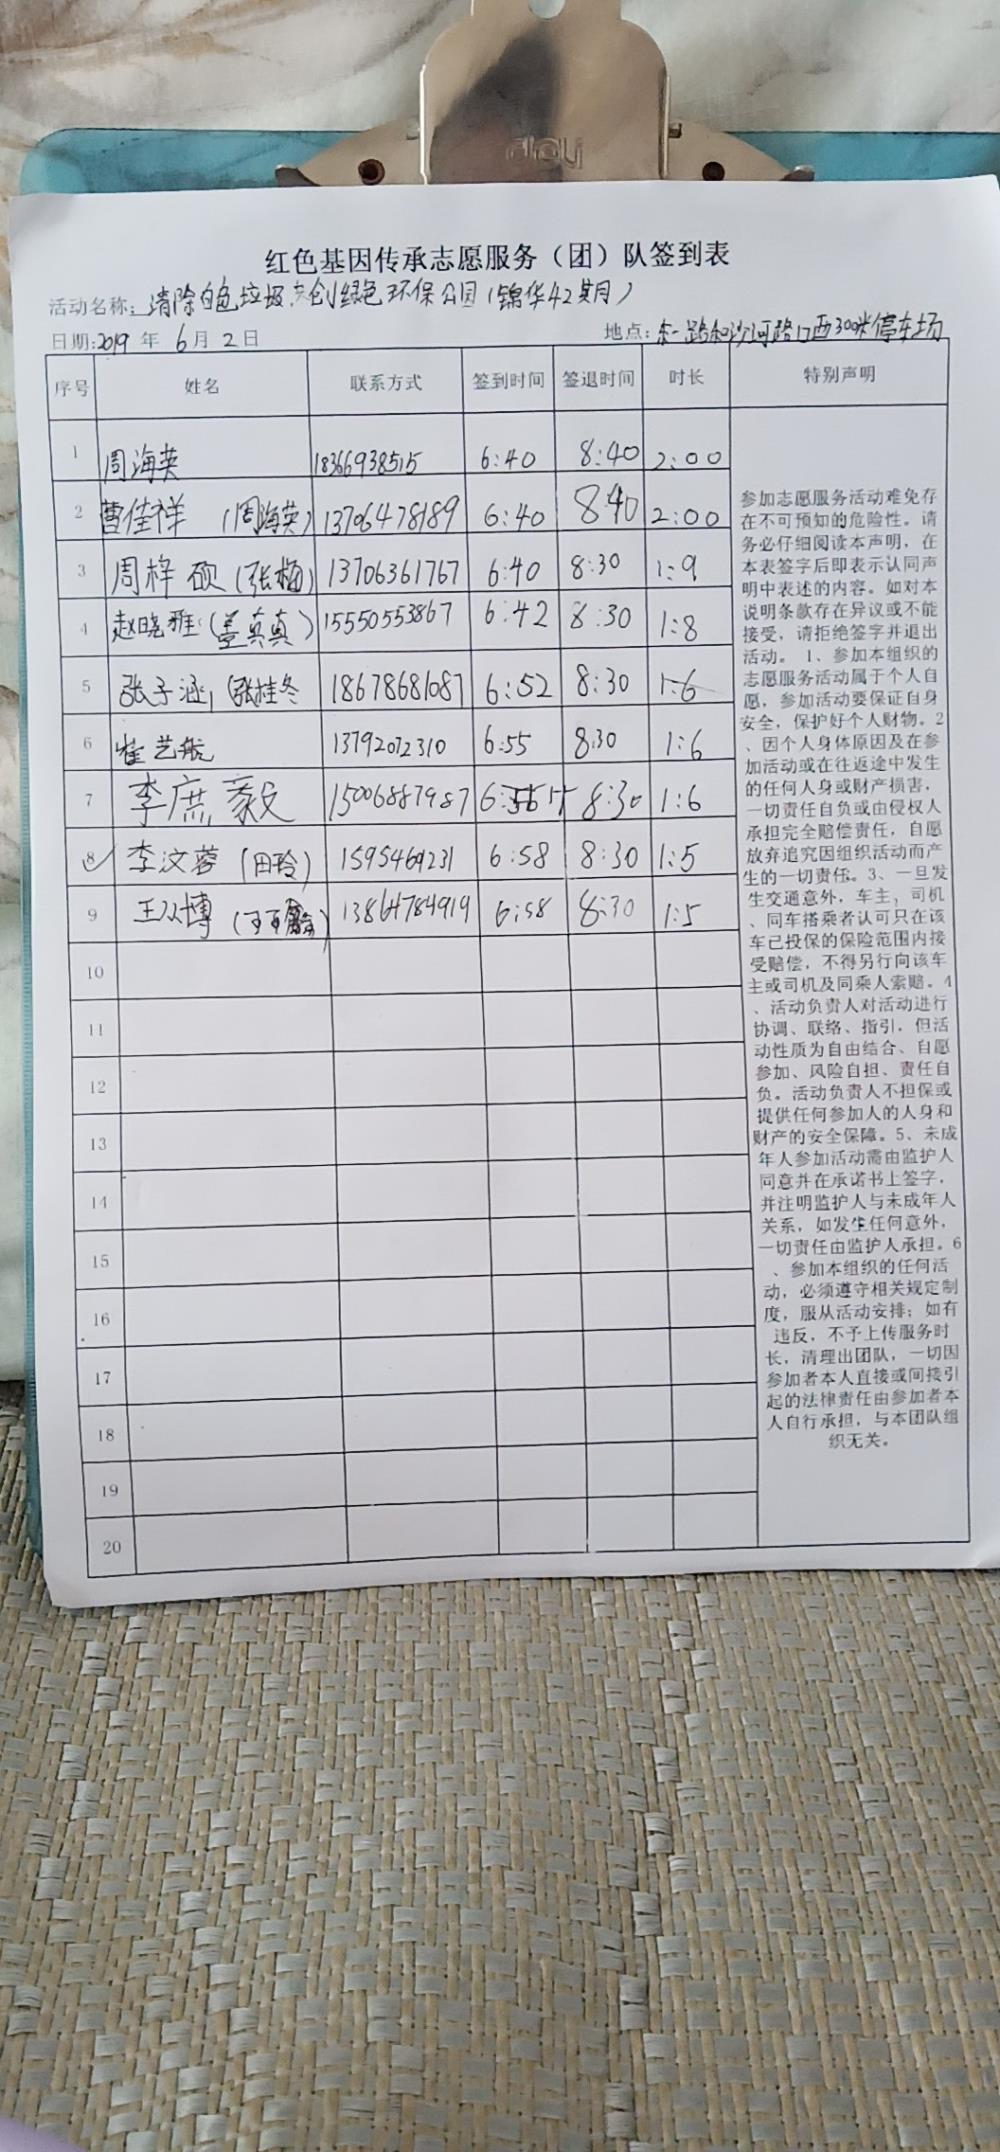 deli
红色基因传承志愿服务（团）队签到表
活动名称：清除白色垃圾共创绿色环保公园（锦华42期）
日期：2019 年 6 月 2 日 地点：东一路和沙河路口西300米停车场
序号 姓名 联系方式 签到时间 签退时间 时长 特别声明
1 周海英 18366938515 6:40 8:40 2:00
2 曹佳祥（周海英） 13706478189 6:40 8:40 2:00
3 周梓硕（张梅） 13706361767 6:40 8:30 1:9
4 赵晓雅（盖真真） 15550553867 6:42 8:30 1:8
5 张子涵（张桂冬 18678681087 6:52 8:30 1:6
6 崔艺航 13792072310 6:55 8:30 1:6
7 李庶毅 15006887987 6:55 8:30 1:6
8 李汶蓉（田玲） 1595469231 6:58 8:30 1:5
9 王 博 13864784919 6:58 8:30 1:5
10
11
12
13
14
15
16
17
18
19
20
参加志愿服务活动难免存
在不可预知的危险性。请
务必仔细阅读本声明，在
本表签字后即表示认同声
明中表述的内容。如对本
说明条款存在异议或不能
接受，请拒绝签字并退出
活动。 1、参加本组织的
志愿服务活动属于个人自
愿，参加活动要保证自身
安全，保护好个人财物。2
、因个人身体原因及在参
加活动或在往返途中发生
的任何人身或财产损害，
一切责任自负或由侵权人
承担完全赔偿责任，自愿
放弃追究因组织活动而产
生的一切责任。3、一旦发
生交通意外，车主，司机
、同车搭乘者认可只在该
车已投保的保险范围内接
受赔偿，不得另行向该车
主或司机及同乘人索赔。4
、活动负责人对活动进行
协调、联络、指引，但活
动性质为自由结合、自愿
参加、风险自担、责任自
负。活动负责人不担保或
提供任何参加人的人身和
财产的安全保障。5、未成
年人参加活动需由监护人
同意并在承诺书上签字，
并注明监护人与未成年人
关系，如发生任何意外，
一切责任由监护人承担。6
、参加本组织的任何活
动，必须遵守相关规定制
度，服从活动安排；如有
违反，不予上传服务时
长，清理出团队，一切因
参加者本人直接或间接引
起的法律责任由参加者本
人自行承担，与本团队组
织无关。